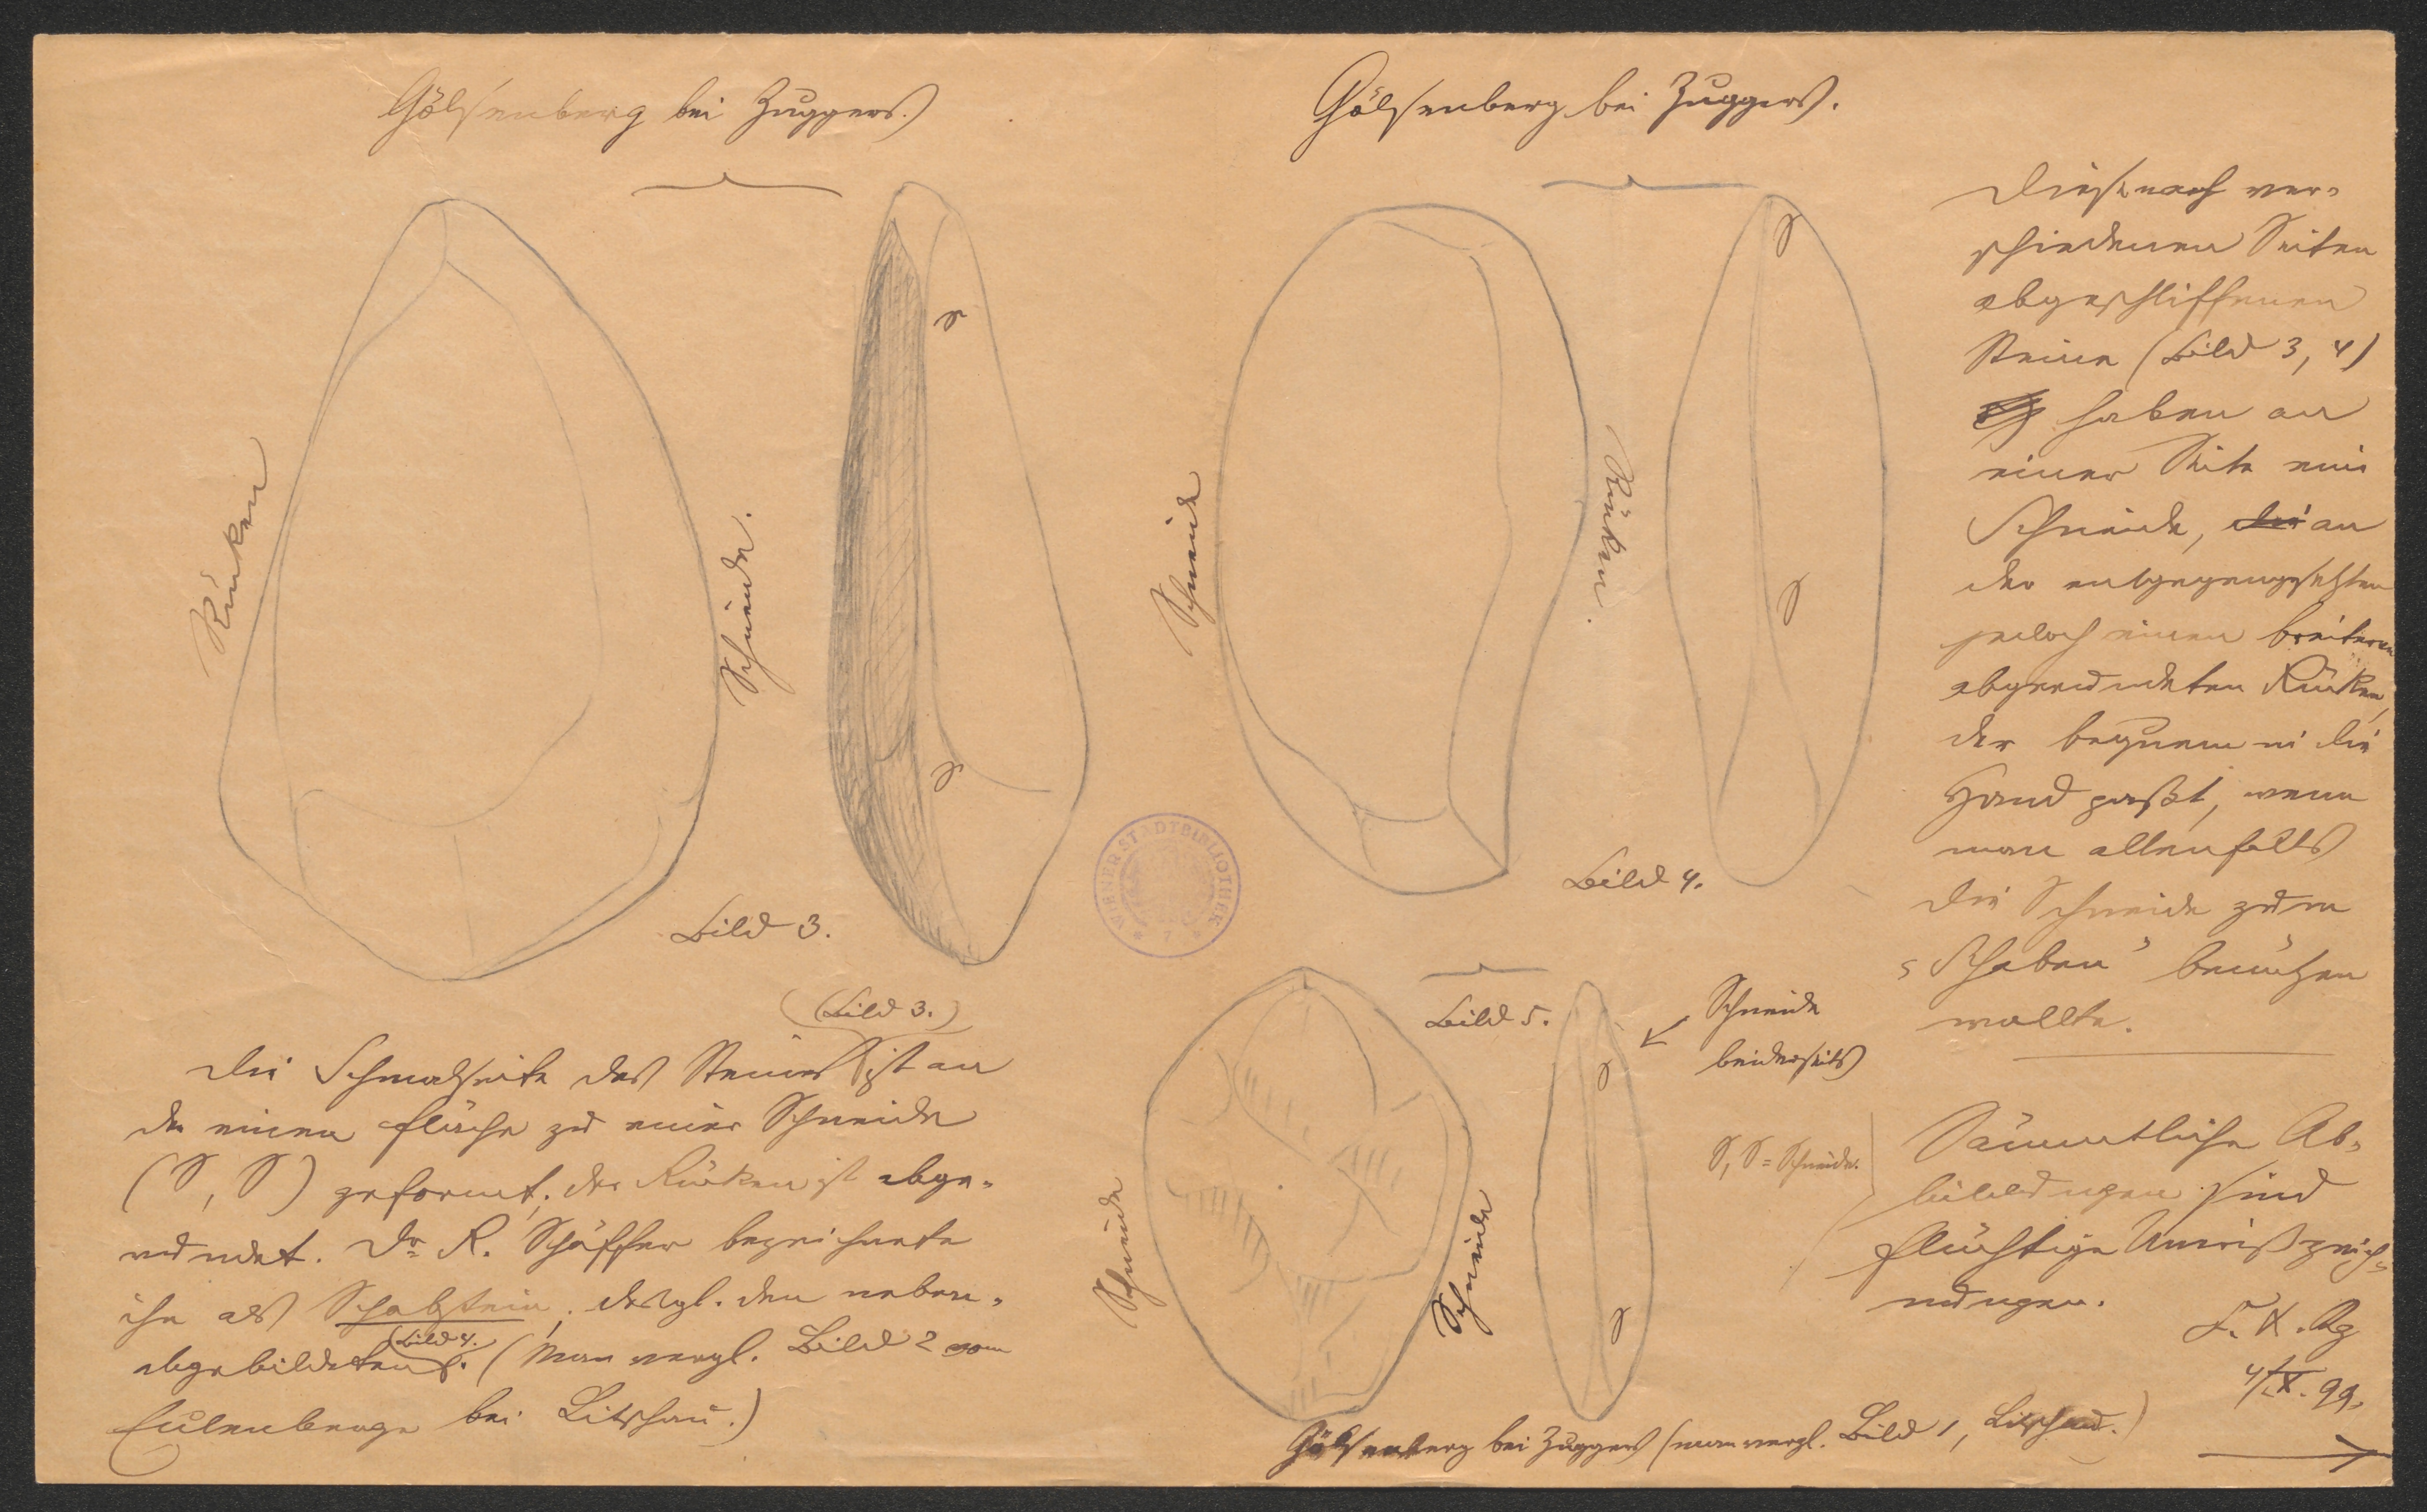 Gölsenberg bei Zuggers.
Rücken
Schneide.
S
S
Bild 3.
(Bild 3.)
Die Schmalseite des Steines ist an
der einen Fläche zu einer Schneide
(S, S) geformt, der Rücken ist abge-
rundet. Dr. R. Schäffer bezeichnete
ihn als Schabstein, desgl. den neben-
(Bild 4.)
abgebildeten. (Man vergl. Bild 2 vom
Eulenberge bei Litschau.)
Gölsenberg bei Zuggers.
Schneide
Rücken.
S
S
Bild 4.
WIENER STADTBIBLIOTHEK
Bild 5.
Schneide
beiderseits
Schneide
Schneide
S
S
S, S = Schneide.
Gölsenberg bei Zuggers (man vergl. Bild 1, Litschau.)
Diese nach ver-
schiedenen Seiten
abgeschliffenen
Steine (Bild 3, 4)
haben an
einer Seite eine
Schneide, die an
der entgegengesetzten
jedoch einen breiteren
abgerundeten Rücken,
der bequem in die
Hand paßt, wenn
man allenfalls
die Schneide zum
"Schaben" benützen
wollte.
Sämmtliche Ab-
bildungen sind
flüchtige Umrißzeich-
nungen.
F. X. Rg
4/X. 99.